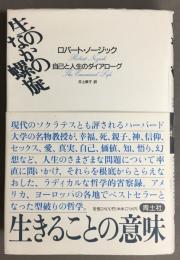 生のなかの螺旋
ロバート・ノージック
Robert Nozick
自己と人生のダイアローグ
The Examined Life
井上章子 訳
現代のソクラテスとも評されるハーバード
大学の名物教授が、幸福、死、親子、神、信仰、
セックス、愛、真実、自己、価値、知、悟り、幻
想など、人生のさまざまな問題について率
直に問いかけ、それらを根底からとらえな
おした、ラディカルな哲学的省察録。アメ
リカ、ヨーロッパの各地でベストセラーと
なった型破りの哲学。
青土社
生きることの意味